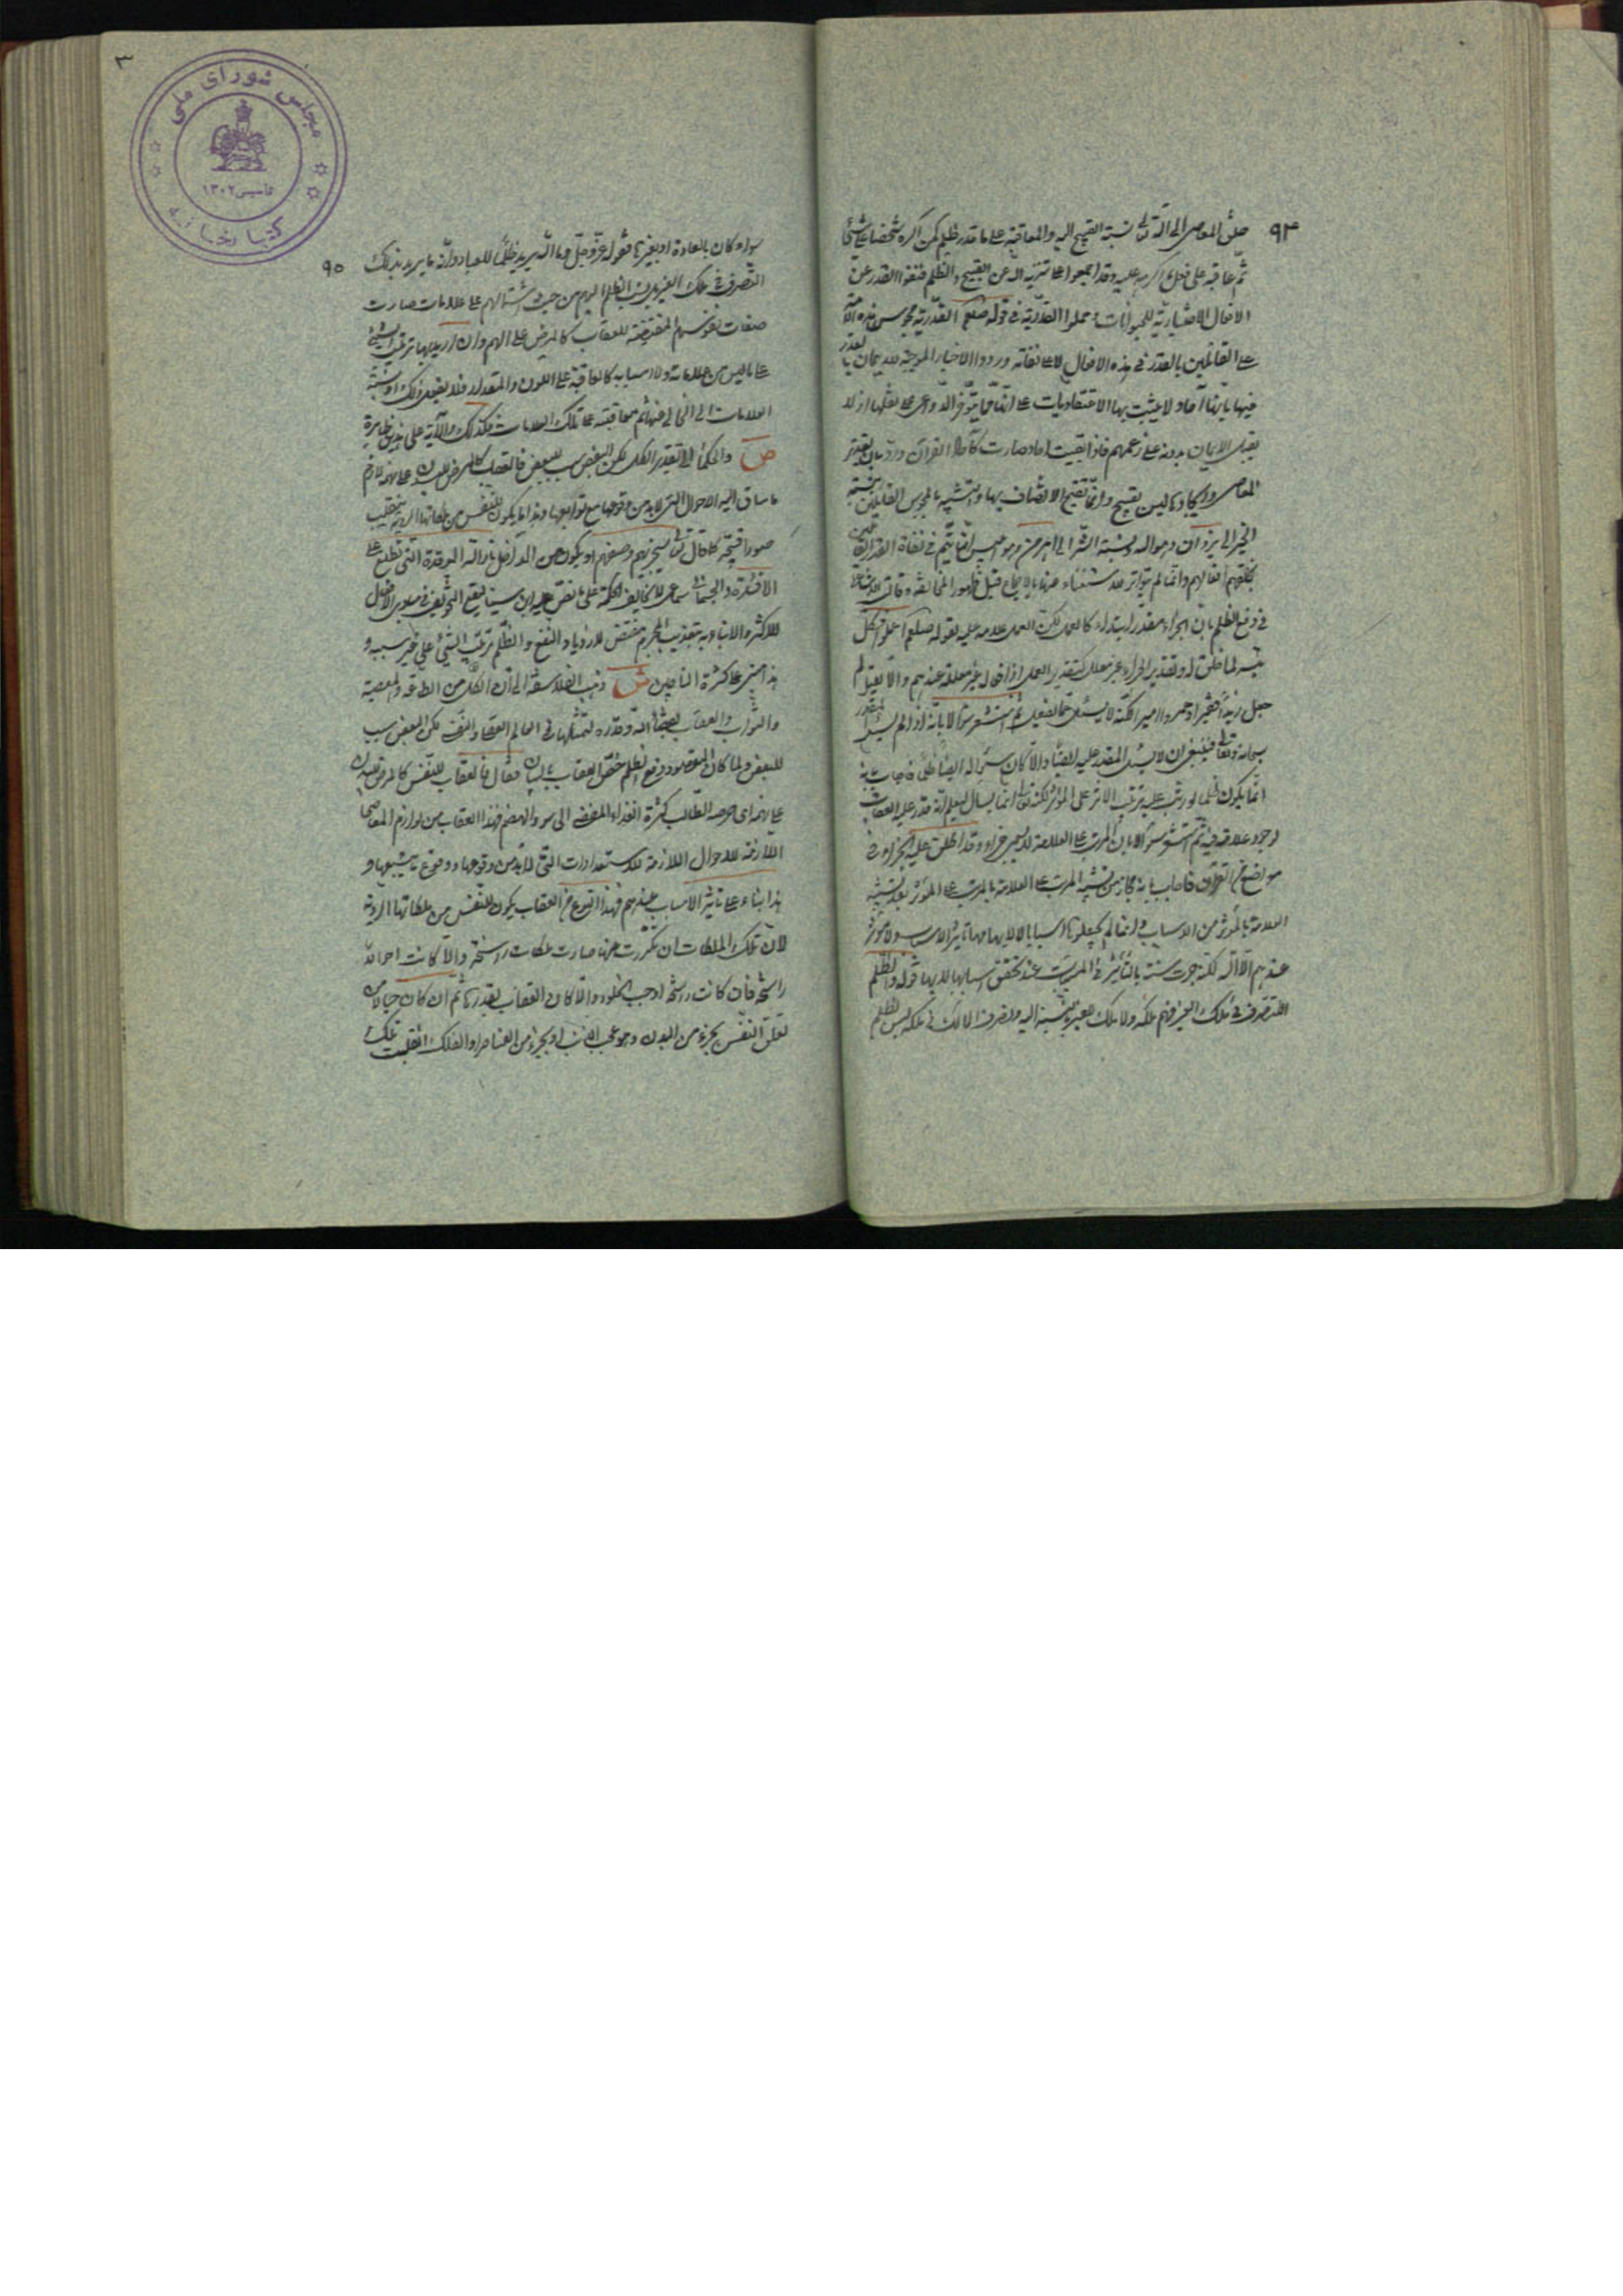 ٩٤
خلق المعاصى الى الله تعالى نسبة القبيح اليه والمعاقبة على ما قدر ظلم كمن اكره شخصا على شئ
ثم عاقبه على فعل ما اكره عليه وقد اجمعوا على تنزيه الله عن القبيح والظلم فنفوا القدر عن
الافعال الاختيارية للحيوانات وحملوا القدرية فى قوله صلعم القدرية مجوس هذه الامة
على القائلين بالقدر فى هذه الافعال لا على نفاته وردوا الاخبار الموجبة للايمان بالقدر
فيها بانها آحاد لا يثبت بها الاعتقاديات على
يقبل الايمان بدونه على زعمهم فاذا بقيت احاد صارت
المعاصى وايجادها ليس بقبيح وانما القبيح الاتصاف بها والتشبيه بالمجوس القائلين بنسبة
الخير الى يزدان وهو الله ونسبة الشر الى اهرمن وهو ابليس انما يتم فى نفاة القدر القائلين
بخلقهم افعالهم وانما لم يتواتر للاستغناء عنها بالاجماع قبل ظهور المخالف
فى دفع الظلم بان الجزاء مقدر ابتداء كالعمل لكن العمل علامة عليه لقوله صلعم اعملوا فكل
ميسر لما خلق له وتقدير الجزاء غير معلل كتقدير العمل اذ افعاله غير معللة عندهم والا يقال لم
جعل زيدا فقيرا وعمروا اميرا لكنه لا يسئل عما يفعل ثم استشعر سؤالا بانه اذا لم يسئل المقدر
سبحانه وتعالى فينبغى ان لا يسئل المقدر عليه ايضا والا كان سؤاله ايضا ظلما فاجاب بانه
انما يكون ظلما لو رتب عليه ترتب الاثر على المؤثر لكنه تعالى انما يسال ليعلم انه قدر عليه العقاب
لوجود علامته فيه ثم استشعر سؤالا بان المرتب على العلامة لا يسمى جزاء وقد اطلق عليه الجزاء فى
مواضع من القرآن فاجاب بانه مجاز من تشبيه المرتب على العلامة بالمرتب على المؤثر بعد تشبيه
العلامة بالمؤثر من الاسباب وانما لم يجعلوها اسبابا لايهامها تاثير الاسباب ولا مؤثر
عندهم الا الله لكنه جرت سنته بالتأثير فى المسببات عند تحقق اسبابها لا بها قوله والظلم
التصرف فى ملك الغير وهم ملكه ولا ملك للغير بالنسبة اليه وتصرف المالك فى ملكه ليس بظلم
٩٥
سواء كان بالعادة او بغيرها فقوله عز وجل وما الله يريد ظلما للعباد وانه ما يريد بذلك
التصرف فى ملك الغير بل الظلم اليهم من حيث اشتمالهم على علامات صارت
صفات نفوسهم المقتضية للعقاب كالمرض على النهم وان اريد بها ترتب الشئ
على ما ليس من علاماته ولا اسبابه كالمعاقبة على اللون والمقدار فلا يفعل ذلك
العلامات الى الخالى عنها ثم معاقبته على تلك العلامات فكذلك والآية على هذين ظاهرة
ص والحكماء الى تقدير الكل لكن البعض سبب للبعض فالعقاب كالمرض للبدن على نهمه لازم
ما ساق اليه الاحوال التى لا بد من وقوعها مع توابعها وهذا ما يكون للنفس من ملكاتها الردية ينقلب
صورا قبيحة كما قال تعالى سيجزيهم وصفهم او يكون من الداخل نار الله الموقدة التى تطلع على
الافئدة والجسمانى سماعى لا يخالف الحكمة على ما نص عليه ابن سينا ليقع التخويف فى مبادى الافعال
للاكثر والايفاء به بتعذيب المجرم مقتض لازدياد النفع والظلم ترتيب الشئ على غير سببه و
هذا مبنى على كثرة الناجين ش ذهب الفلاسفة الى ان الكل من الطاعة والمعصية
والثواب والعقاب بقضاء الله وقدره لتمثلها فى العالم العقلى والنفسى لكن البعض سبب
للبعض ولما كان المقصود دفع الظلم خص العقاب بالبيان فقال فالعقاب للنفس كالمرض للبدن
على نهمه اى حرصه الطالب كثرة الغذاء المفضى الى سوء الهضم فهذا العقاب من لوازم المعاصى
اللازمة للاحوال اللازمة للاستعدادات التى لا بد من وقوعها ووقوع ما يتبعها و
هذا بناء على تاثير الاسباب عندهم فهذا النوع من العقاب يكون للنفس من ملكاتها الردية
لان تلك الملكات ان تكررت عنها صارت ملكات راسخة والا كانت احوالا
راسخة فان كانت راسخة اوجب الخلود والا كان العقاب بقدرها ثم ان كان خيالا من
تعلق النفس بجزء من البدن وهو عجب الذنب او بجزء من العناصر او الفلك انقلبت تلك
مجلس شورای ملی
تاسیس ۱۳۰۲
کتابخانه
٣